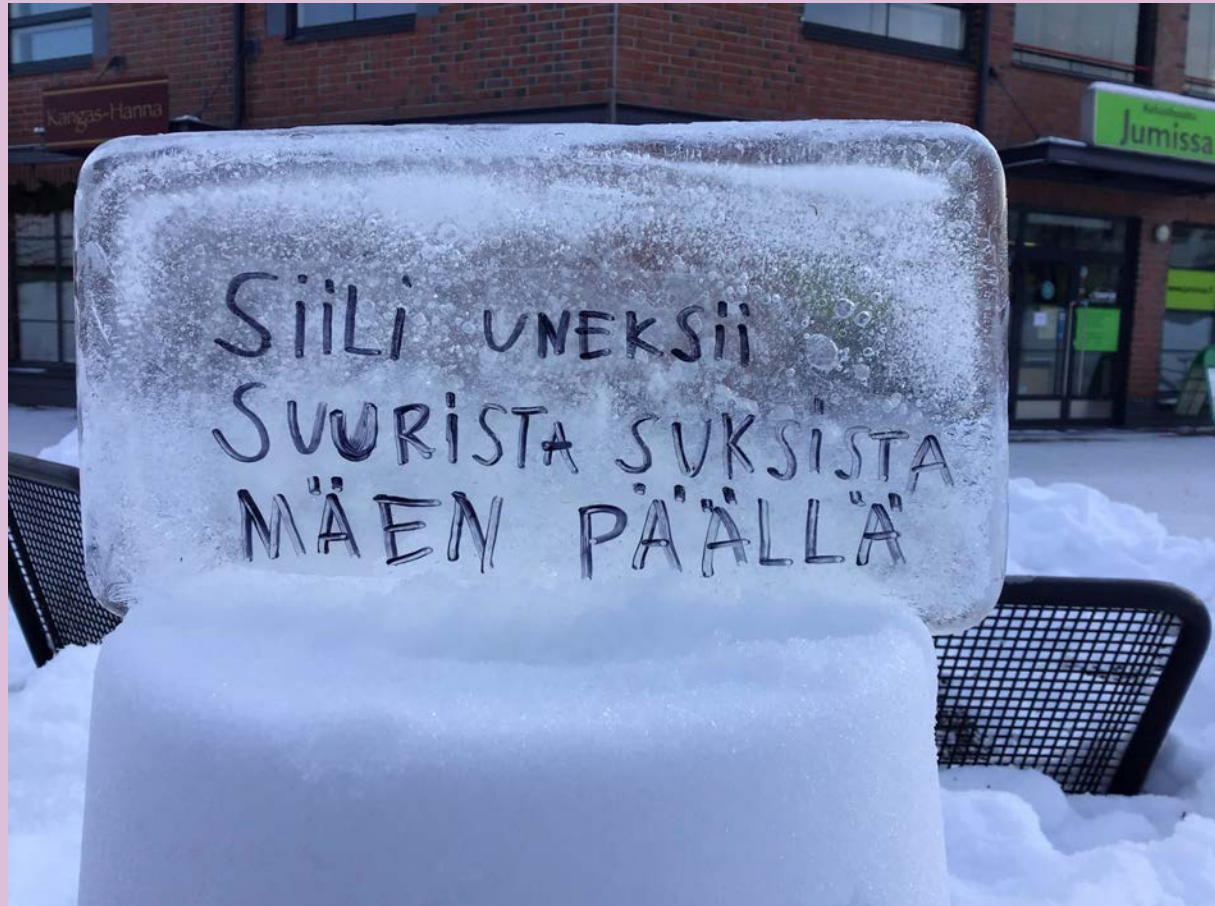 Kangas-Hanna
Jumissa
SiiLi UNEKSii
SUURiSTA SUKSiSTA
MÄEN PÄÄLLÄ